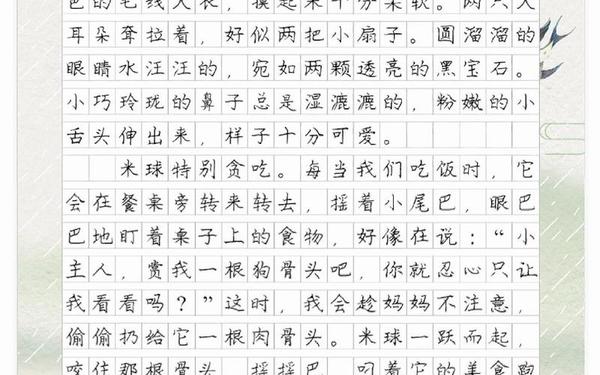 色的毛线大衣，摸起来十分柔软。两只大
耳朵耷拉着，好似两把小扇子。圆溜溜的
眼睛水汪汪的，宛如两颗透亮的黑宝石。
小巧玲珑的鼻子总是湿漉漉的，粉嫩的小
舌头伸出来，样子十分可爱。
米球特别贪吃。每当我们吃饭时，它
会在餐桌旁转来转去，摇着小尾巴，眼巴
巴地盯着桌子上的食物，好像在说：“小
主人，赏我一根狗骨头吧，你就忍心只让
我看看吗？”这时，我会趁妈妈不注意，
偷偷扔给它一根肉骨头。米球一跃而起，
咬住那根骨头，摇摇巴，叼着它的美食跑